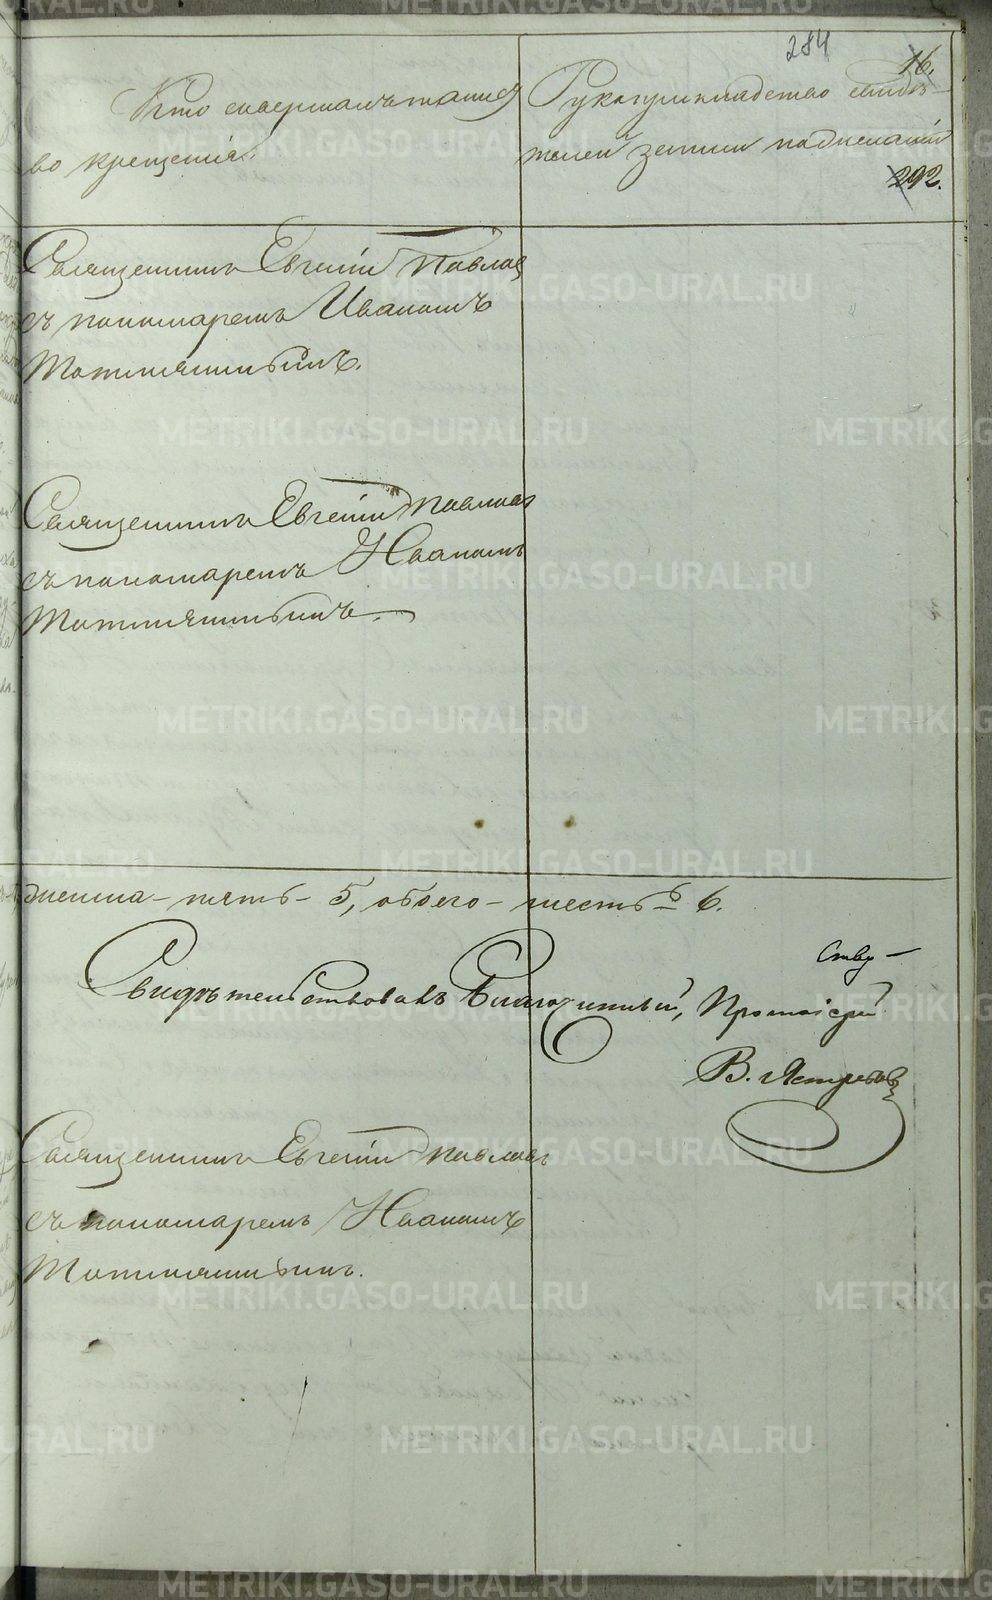 284
16.
Кто совершалъ таинст
во крещенія.
Рукоприкладство свидѣ-
телей записи по желанію
292.
Священникъ Евгеній Павловъ
съ пономаремъ Иваномъ
Священникъ Евгеній Павловъ
съ пономаремъ Иваномъ
женска – пять – 5, обоего – шесть – 6.
Свидѣтельствовалъ Благочинный, Протоіерей
В. Ястребовъ
Священникъ Евгеній Павловъ
съ пономаремъ Иваномъ
METRIKI.GASO-URAL.RU